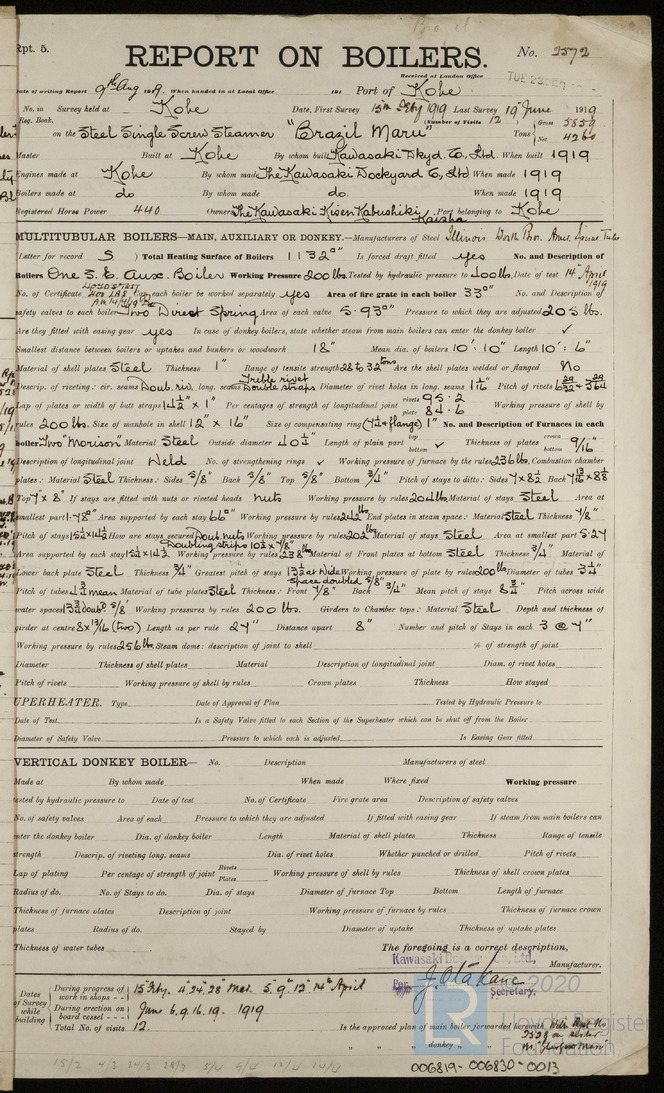 Rpt. 5.
REPORT ON BOILERS.
No. 3572
Received at London Office
TUE 23 SEP
Date of writing Report 9th Aug 1919. When handed in at Local Office 191 Port of Kobe
No. in Survey held at Kobe Date, First Survey 15th Feby 1919 Last Survey 19 June 1919
Reg. Book. (Number of Visits 12 Gross 5859
on the Steel Single Screw Steamer "Brazil Maru" Tons Net 4260
Master Built at Kobe By whom built Kawasaki Dkyd. Co., Ltd. When built 1919
Engines made at Kobe By whom made The Kawasaki Dockyard Co., Ltd When made 1919
Boilers made at do By whom made do. When made 1919
Registered Horse Power 440 Owners The Kawasaki Kisen Kabushiki Kaisha Port belonging to Kobe
MULTITUBULAR BOILERS—MAIN, AUXILIARY OR DONKEY.—Manufacturers of Steel Illinois,
(Letter for record S ) Total Heating Surface of Boilers 1132 □" Is forced draft fitted yes No. and Description of
Boilers One S. E. Aux. Boiler Working Pressure 200 lbs. Tested by hydraulic pressure to 400 lbs. Date of test 14th April 1919
No. of Certificate Can each boiler be worked separately yes Area of fire grate in each boiler 33 □" No. and Description of
safety valves to each boiler Two Direct Spring Area of each valve 5.93 □" Pressure to which they are adjusted 205 lbs.
Are they fitted with easing gear yes In case of donkey boilers, state whether steam from main boilers can enter the donkey boiler ✓
Smallest distance between boilers or uptakes and bunkers or woodwork 18" Mean dia. of boilers 10'. 10" Length 10'. 6"
Material of shell plates Steel Thickness 1" Range of tensile strength 28 to 32 tons Are the shell plates welded or flanged No
Descrip. of riveting: cir. seams Doub. riv. long. seams Treble rivet Double straps Diameter of rivet holes in long. seams 1 1/16" Pitch of rivets
Lap of plates or width of butt straps 14 1/2" x 1" Per centages of strength of longitudinal joint rivets 95.2 plate 84.6 Working pressure of shell by
rules 200 lbs. Size of manhole in shell 12" x 16" Size of compensating ring (7 1/2 + flange) 1" No. and Description of Furnaces in each
boiler Two "Morison" Material Steel Outside diameter 40 1/4" Length of plain part top bottom ✓ Thickness of plates crown bottom 9/16"
Description of longitudinal joint Weld No. of strengthening rings ✓ Working pressure of furnace by the rules 236 lbs. Combustion chamber
plates: Material Steel Thickness: Sides 5/8" Back 5/8" Top 5/8" Bottom 3/4" Pitch of stays to ditto: Sides 7 x 8 1/2 Back 7 13/16 x 8 1/8
Top 7" x 8" If stays are fitted with nuts or riveted heads nuts Working pressure by rules 204 lbs Material of stays Steel Area at
smallest part 1.78 □" Area supported by each stay 66 □" Working pressure by rules 242 lbs End plates in steam space: Material Steel Thickness 7/8"
Pitch of stays 15 1/2 x 14 1/2 How are stays secured Doub. nuts Working pressure by rules 202 lbs Material of stays Steel Area at smallest part 5.27
Doubling strips 10 1/2 x 7/8"
Area supported by each stay 15 1/2 x 14 1/2 Working pressure by rules 238 lbs Material of Front plates at bottom Steel Thickness 3/4" Material of
Lower back plate Steel Thickness 3/4" Greatest pitch of stays 13 1/2 at Wide Space doubled 5/8" Working pressure of plate by rules 200 lbs Diameter of tubes 3 1/4"
Pitch of tubes 4 3/4 mean Material of tube plates Steel Thickness: Front 7/8" Back 3/4" Mean pitch of stays 8 3/4" Pitch across wide
water spaces 13 3/4 Doub'd 5/8" Working pressures by rules 200 lbs. Girders to Chamber tops: Material Steel Depth and thickness of
girder at centre 8 x 13/16 (two) Length as per rule 27" Distance apart 8" Number and pitch of Stays in each 3 @ 7"
Working pressure by rules 256 lbs. Steam dome: description of joint to shell % of strength of joint
Diameter Thickness of shell plates Material Description of longitudinal joint Diam. of rivet holes
Pitch of rivets Working pressure of shell by rules Crown plates Thickness How stayed
UPERHEATER. Type Date of Approval of Plan Tested by Hydraulic Pressure to
Date of Test Is a Safety Valve fitted to each Section of the Superheater which can be shut off from the Boiler
Diameter of Safety Valve Pressure to which each is adjusted Is Easing Gear fitted
VERTICAL DONKEY BOILER— No. Description Manufacturers of steel
Made at By whom made When made Where fixed Working pressure
tested by hydraulic pressure to Date of test No. of Certificate Fire grate area Description of safety valves
No. of safety valves Area of each Pressure to which they are adjusted If fitted with easing gear If steam from main boilers can
enter the donkey boiler Dia. of donkey boiler Length Material of shell plates Thickness Range of tensile
strength Descrip. of riveting long. seams Dia. of rivet holes Whether punched or drilled Pitch of rivets
Lap of plating Per centage of strength of joint Rivets Plates Working pressure of shell by rules Thickness of shell crown plates
Radius of do. No. of Stays to do. Dia. of stays Diameter of furnace Top Bottom Length of furnace
Thickness of furnace plates Description of joint Working pressure of furnace by rules Thickness of furnace crown
plates Radius of do. Stayed by Diameter of uptake Thickness of uptake plates
Thickness of water tubes
The foregoing is a correct description,
Manufacturer.
Secretary.
2020
Lloyd's Register Foundation
Dates of Survey while building
During progress of work in shops - - 15 Feby. 4. 24. 28 Mar. 5. 9. 12 14th April
During erection on board vessel - - - June 6. 9. 16. 19. 1919
Total No. of visits 12.
Is the approved plan of main boiler forwarded herewith With Rpt No
" " " donkey " "
006819-006830-0013